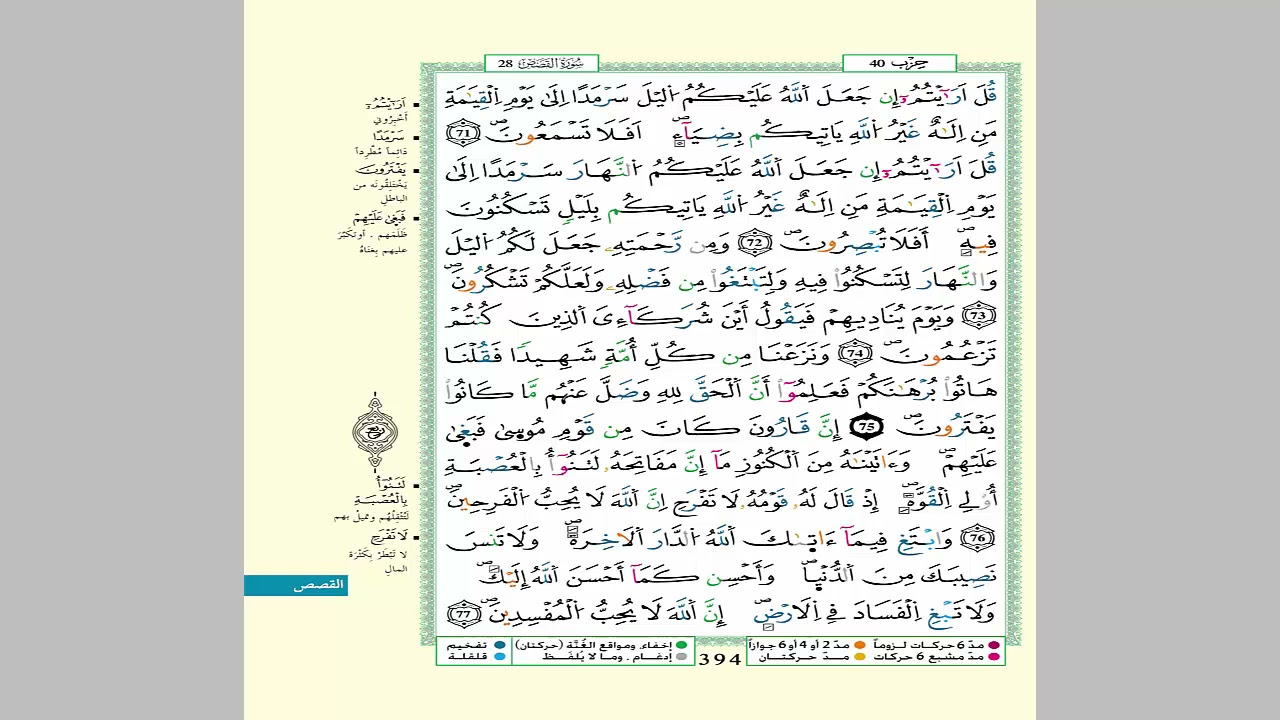 سُورَةُ القَصَصِ 28
حِزْب 40
قُلَ اَرَٰٓيْتُمُۥٓ إِن جَعَلَ اَ۬للَّهُ عَلَيْكُمُ اُ۬ليْلَ سَرْمَدًا اِلَىٰ يَوْمِ اِ۬لْقِيَٰمَةِ
مَنِ اِلَٰهٌ غَيْرُ اُ۬للَّهِ يَاتِيكُم بِضِيَآءٍ اَفَلَا تَسْمَعُونَ 71
قُلَ اَرَٰٓيْتُمُۥٓ إِن جَعَلَ اَ۬للَّهُ عَلَيْكُمُ اُ۬لنَّهَارَ سَرْمَدًا اِلَىٰ
يَوْمِ اِ۬لْقِيَٰمَةِ مَنِ اِلَٰهٌ غَيْرُ اُ۬للَّهِ يَاتِيكُم بِلَيْلٍ تَسْكُنُونَ
فِيهِ أَفَلَا تُبْصِرُونَ 72 وَمِن رَّحْمَتِهِۦ جَعَلَ لَكُمُ اُ۬ليْلَ
وَالنَّهَارَ لِتَسْكُنُواْ فِيهِ وَلِتَبْتَغُواْ مِن فَضْلِهِۦ وَلَعَلَّكُمْ تَشْكُرُونَ
73 وَيَوْمَ يُنَادِيهِمْ فَيَقُولُ أَيْنَ شُرَكَآءِيَ اَ۬لذِينَ كُنتُمْ
تَزْعُمُونَ 74 وَنَزَعْنَا مِن كُلِّ أُمَّةٍ شَهِيدًا فَقُلْنَا
هَاتُواْ بُرْهَٰنَكُمْ فَعَلِمُوٓاْ أَنَّ اَ۬لْحَقَّ لِلهِ وَضَلَّ عَنْهُم مَّا كَانُواْ
يَفْتَرُونَ 75 إِنَّ قَارُونَ كَانَ مِن قَوْمِ مُوسَىٰ فَبَغَىٰ
عَلَيْهِمْ وَءَاتَيْنَٰهُ مِنَ اَ۬لْكُنُوزِ مَآ إِنَّ مَفَاتِحَهُۥ لَتَنُوٓأُ بِالْعُصْبَةِ
أُوْلِي اِ۬لْقُوَّةِ إِذْ قَالَ لَهُۥ قَوْمُهُۥ لَا تَفْرَحِ اِنَّ اَ۬للَّهَ لَا يُحِبُّ اُ۬لْفَرِحِينَ
76 وَابْتَغِ فِيمَآ ءَاتَىٰكَ اَ۬للَّهُ اُ۬لدَّارَ اَ۬لَاخِرَةَ وَلَا تَنسَ
نَصِيبَكَ مِنَ اَ۬لدُّنْيَا وَأَحْسِن كَمَآ أَحْسَنَ اَ۬للَّهُ إِلَيْكَ
وَلَا تَبْغِ اِ۬لْفَسَادَ فِي اِ۬لَارْضِ إِنَّ اَ۬للَّهَ لَا يُحِبُّ اُ۬لْمُفْسِدِينَ 77
أَرَٰٓيْتُمُۥٓ
أخْبِرُوني
سَرْمَدًا
دَائماً مُطَّرِداً
يَفْتَرُونَ
يَخْتَلِقُونَه من
الباطلِ
فَبَغَىٰ عَلَيْهِمْ
ظَلَمَهم . أوتكَبَّرَ
عليهم بِغنَاهُ
ربع
لَتَنُوٓأُ
بِالْعُصْبَةِ
لتُثْقِلُهُم وتَميلُ بهم
لَا تَفْرَحِ
لا تَبْطَرْ بِكَثْرَة
المالِ
القصص
مدّ 6 حركات لـزوماً
مدّ 2 أو 4 أو 6 جوازاً
مدّ مشبع 6 حركات
مــدّ حـركـتــان
394
إخفاء، ومواقع الغُنَّة (حركتان)
إدغـام ، ومـا لا يُلفَـظ
تفخيم
قلقلة